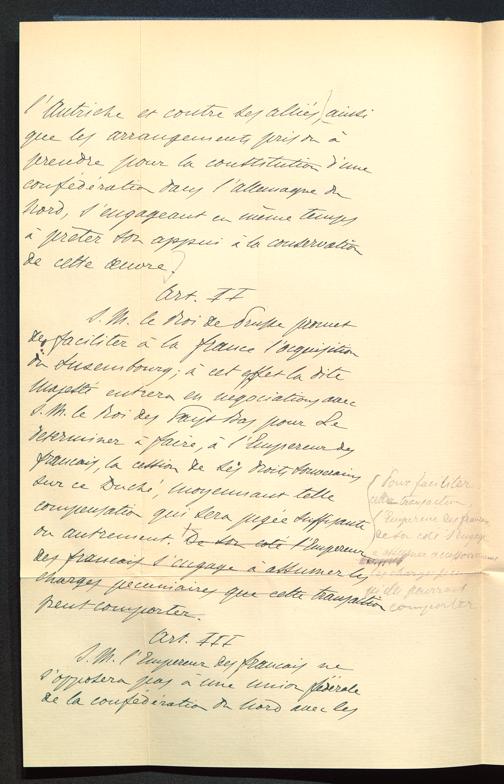 l'Autriche et contre ses alliés, ainsi
que les arrangements pris ou à
prendre pour la constitution d'une
confédération dans l'allemagne du
Nord, s'engageant en même temps
à prêter son appui à la conservation
de cette œuvre.
Art. II
S. M. le Roi de Prusse promet
de faciliter à la france l'acquisition
du Luxembourg; à cet effet la dite
Majesté entrera en négociations avec
S. M. le Roi des Pays Bas pour Le
déterminer à faire, à l'Empereur des
français, la cession de Ses Droits Souverains
sur ce Duché, moyennant telle
compensation qui sera jugée suffisante
ou autrement. De son coté l'Empereur
des francais s'engage à assumer les
charges pecuniaires que cette transaction
peut comporter.
Pour faciliter
cette transaction,
l'Empereur des français
de son coté s'engage
à assumer accessoirement
les charges
qu'elle pourrait
comporter
Art. III
S. M. l'Empereur des francais ne
s'opposera pas à une union fédérale
de la confédération du Nord avec les